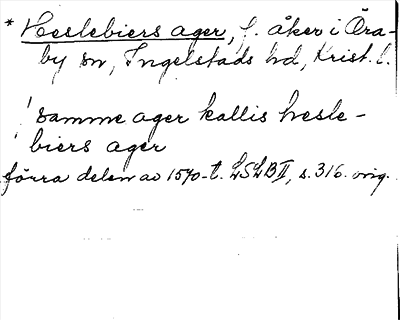 * Heslebiers ager, f. åker i Öra-
by sn, Ingelstads hd, Krist. l.
! samme ager kallis hesle-
biers ager
förra delen av 1570-t. LSLB II, s. 316. orig.